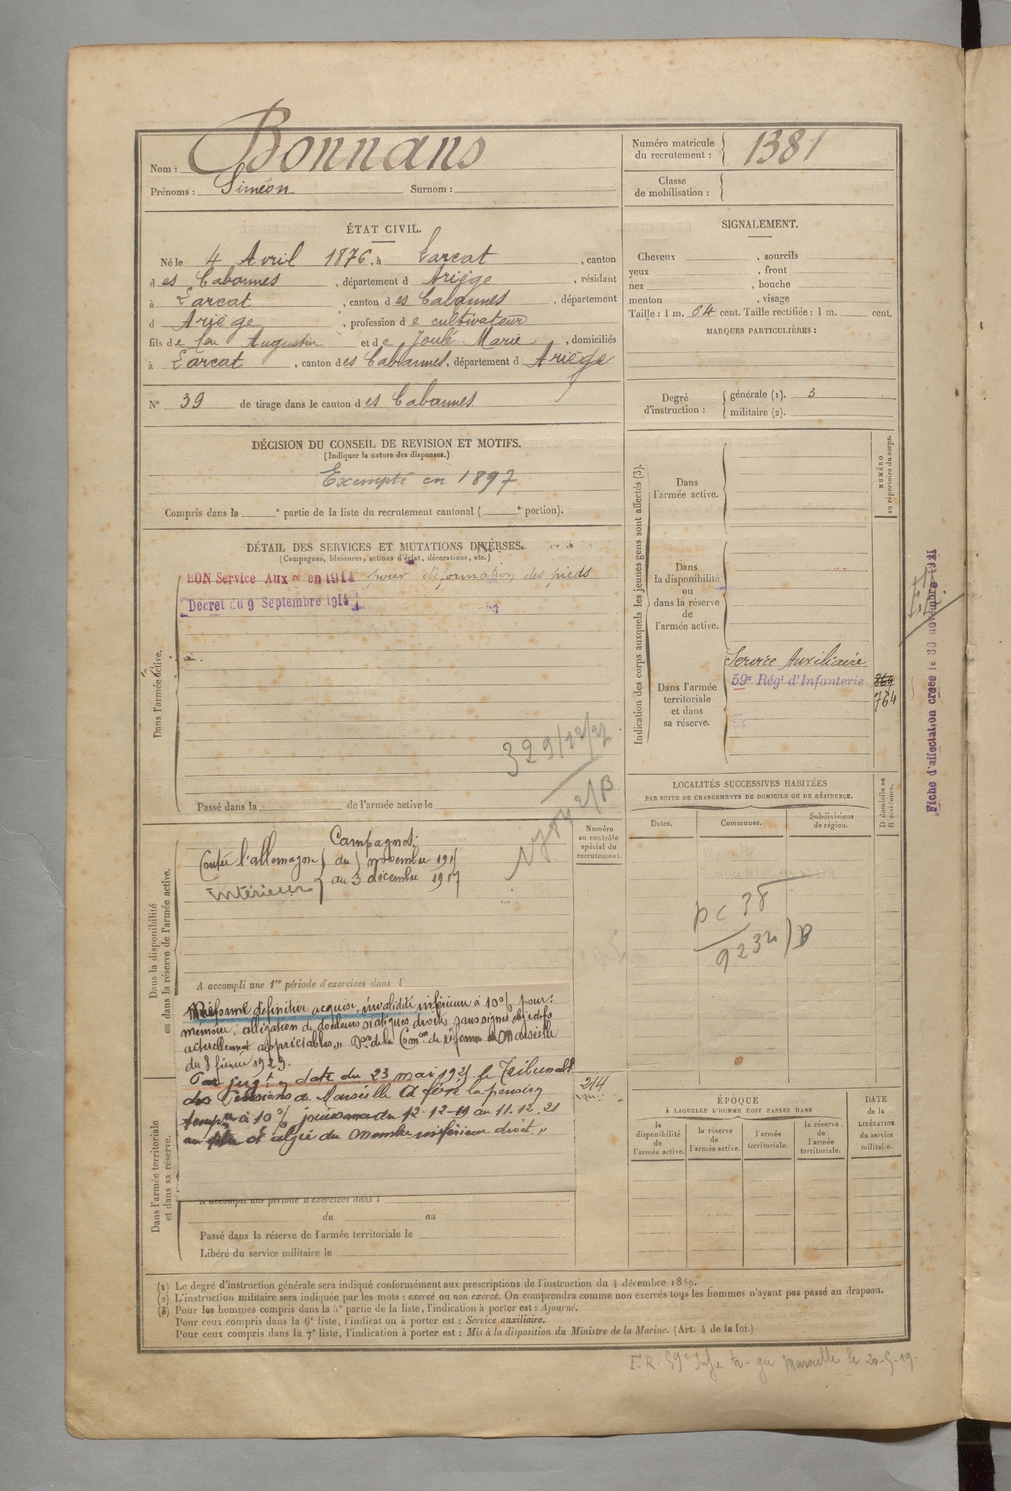 Nom : Bonnans
Prénoms : Siméon Surnom :
Numéro matricule du recrutement : 1381
Classe de mobilisation :
ÉTAT CIVIL.
Né le 4 Avril 1876, à Larcat, canton
des Cabannes, département d Ariège, résidant
à Larcat, canton des Cabannes, département
d Ariège, profession de cultivateur
fils de feu Augustin et de Joulé Marie, domiciliés
à Larcat, canton des Cabannes, département d Ariège
N° 39 de tirage dans le canton des Cabannes
SIGNALEMENT.
Cheveux , sourcils
yeux , front
nez , bouche
menton , visage
Taille : 1 m. 64 cent. Taille rectifiée : 1 m. cent.
MARQUES PARTICULIÈRES :
Degré d'instruction : générale (1). 3
militaire (2).
DÉCISION DU CONSEIL DE REVISION ET MOTIFS.
(Indiquer la nature des dispenses.)
Exempté en 1897
Compris dans la e partie de la liste du recrutement cantonal ( e portion).
DÉTAIL DES SERVICES ET MUTATIONS DIVERSES.
(Campagnes, blessures, actions d'éclat, décorations, etc.)
BON Service Aux re en 1914 pour déformation des pieds
Décret du 9 Septembre 1914
Dans l'armée active.
329/12/21
Passé dans la de l'armée active le
Indication des corps auxquels les jeunes gens sont affectés (3).
NUMÉRO au répertoire du corps.
Dans l'armée active.
Dans la disponibilité ou dans la réserve de l'armée active.
Dans l'armée territoriale et dans sa réserve.
Service Auxiliaire
59e Régt d'Infanterie
764
Fiche d'affectation créée le 30 novembre 1921
LOCALITÉS SUCCESSIVES HABITÉES
PAR SUITE DE CHANGEMENTS DE DOMICILE OU DE RÉSIDENCE.
Dates. Communes. Subdivisions de région. D domicile ou R résidence.
pc 38
9232/B
Dans la disponibilité ou dans la réserve de l'armée active.
Numéro au contrôle spécial du recrutement.
Campagnes:
Contre l'allemagne du 5 novembre 1915
intérieur au 3 décembre 1917
A accompli une 1re période d'exercices dans l
Réforme définitive acquise, invalidité inférieure à 10% pour:
mémoire; allégation de douleurs sciatiques droites sans signes objectifs
actuellement appréciables. Don de la Comon de réforme Marseille
du 8 février 1923.
Par jugt en date du 23 mai 1925 le Tribunal
des Pensions de Marseille a fixé la pension
tempre à 10% jouissance du 12-12-19 au 11.12.21
et algie du membre inférieur droit."
214
Dans l'armée territoriale et dans sa réserve.
A accompli une période d'exercices dans l
du au
Passé dans la réserve de l'armée territoriale le
Libéré du service militaire le
ÉPOQUE
À LAQUELLE L'HOMME DOIT PASSER DANS
la disponibilité de l'armée active.
la réserve de l'armée active.
l'armée territoriale.
la réserve de l'armée territoriale.
DATE de la LIBÉRATION du service militaire.
(1) Le degré d'instruction générale sera indiqué conformément aux prescriptions de l'instruction du 4 décembre 1889.
(2) L'instruction militaire sera indiquée par les mots : exercé ou non exercé. On comprendra comme non exercés tous les hommes n'ayant pas passé au drapeau.
(3) Pour les hommes compris dans la 5e partie de la liste, l'indication à porter est : Ajourné.
Pour ceux compris dans la 6e liste, l'indication à porter est : Service auxiliaire.
Pour ceux compris dans la 7e liste, l'indication à porter est : Mis à la disposition du Ministre de la Marine. (Art. 4 de la loi.)
Marseille le 20-5-19.